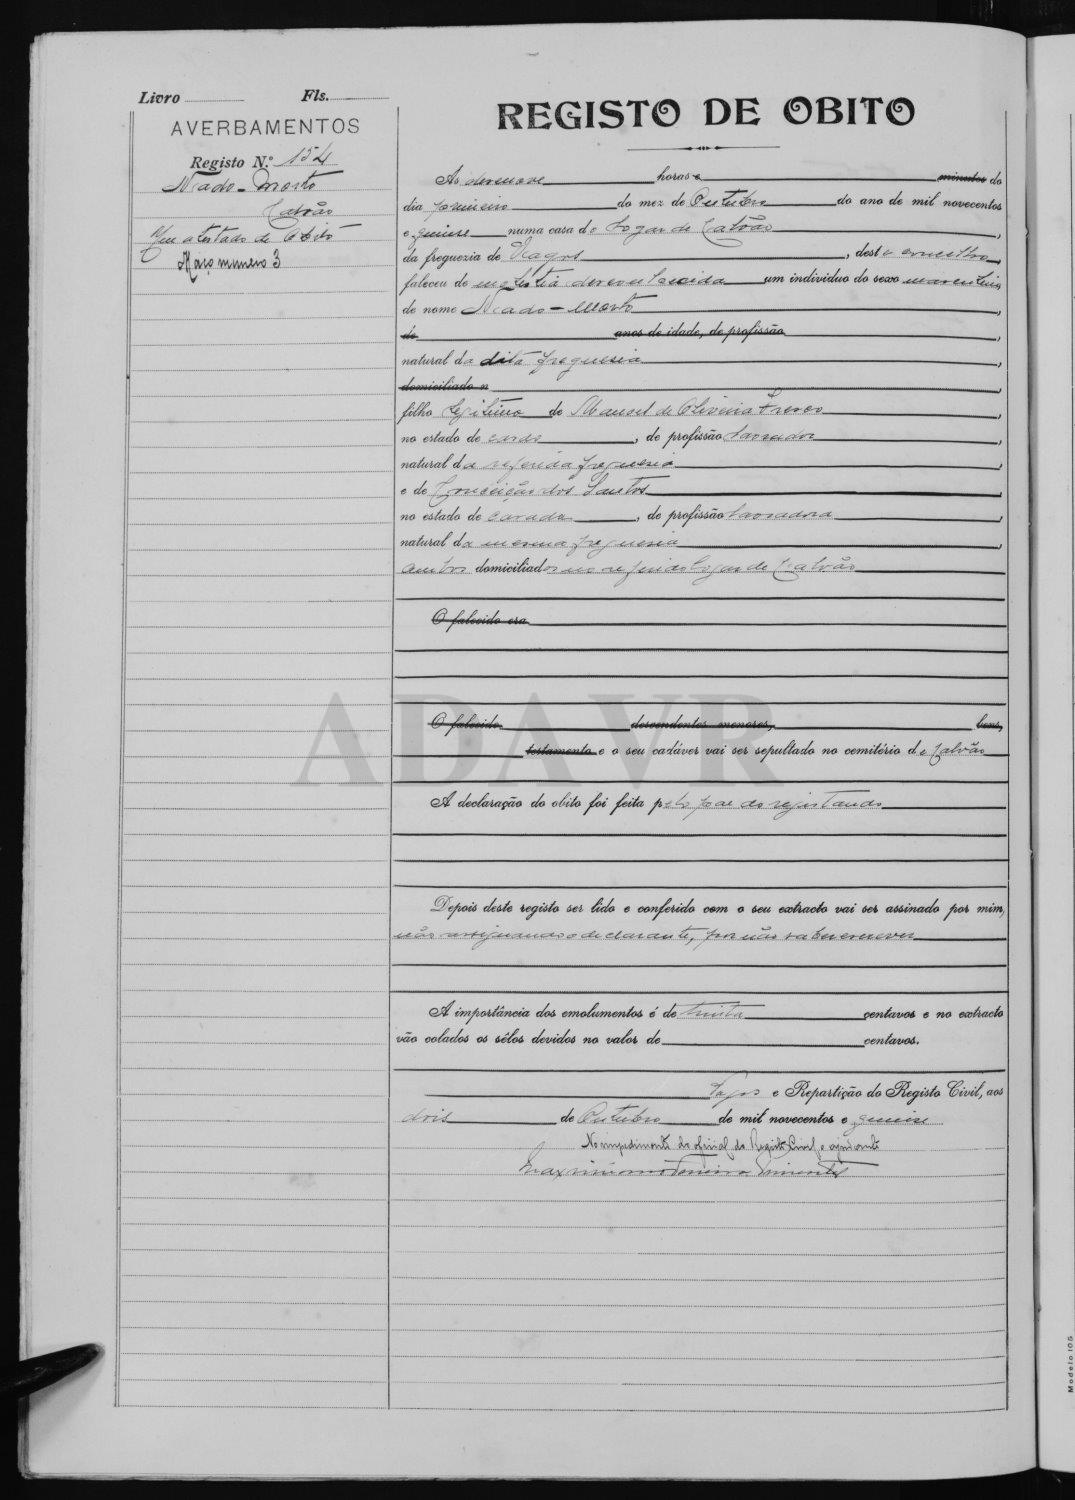 Livro Fls.
AVERBAMENTOS
Registo N.º 154
Nado-Morto
Calvão
Um atestado de Obito
Março numero 3
REGISTO DE OBITO
Ás desenove horas e minutos do
dia primeiro do mez de Outubro do ano de mil novecentos
e quinse numa casa do Logar de Calvão,
da freguezia de Vagos, deste concelho,
faleceu de molestia desconhecida um individuo do sexo masculino
de nome Nado-Morto,
de anos de idade, de profissão,
natural da dita freguesia,
domiciliado n,
filho legitimo de Manoel de Oliveira Fresco,
no estado de casado, de profissão lavrador,
natural da referida freguesia,
e de Conceição dos Santos,
no estado de casada, de profissão lavradora,
natural da mesma freguesia,
ambos domiciliados no referido logar de Calvão
O falecido era
O falecido descendentes menores, bens,
testamento e o seu cadáver vai ser sepultado no cemitério de Calvão
A declaração do obito foi feita pelo pae do registando
Depois deste registo ser lido e conferido com o seu extracto vai ser assinado por mim,
não assignando o declarante, por não saber escrever
A importância dos emolumentos é de trinta centavos e no extracto
vão colados os sêlos devidos no valor de centavos.
Vagos e Repartição do Registo Civil, aos
dois de Outubro de mil novecentos e quinse
No impedimento do oficial do Registo Civil o ajudante
ADAVR
Modelo 105